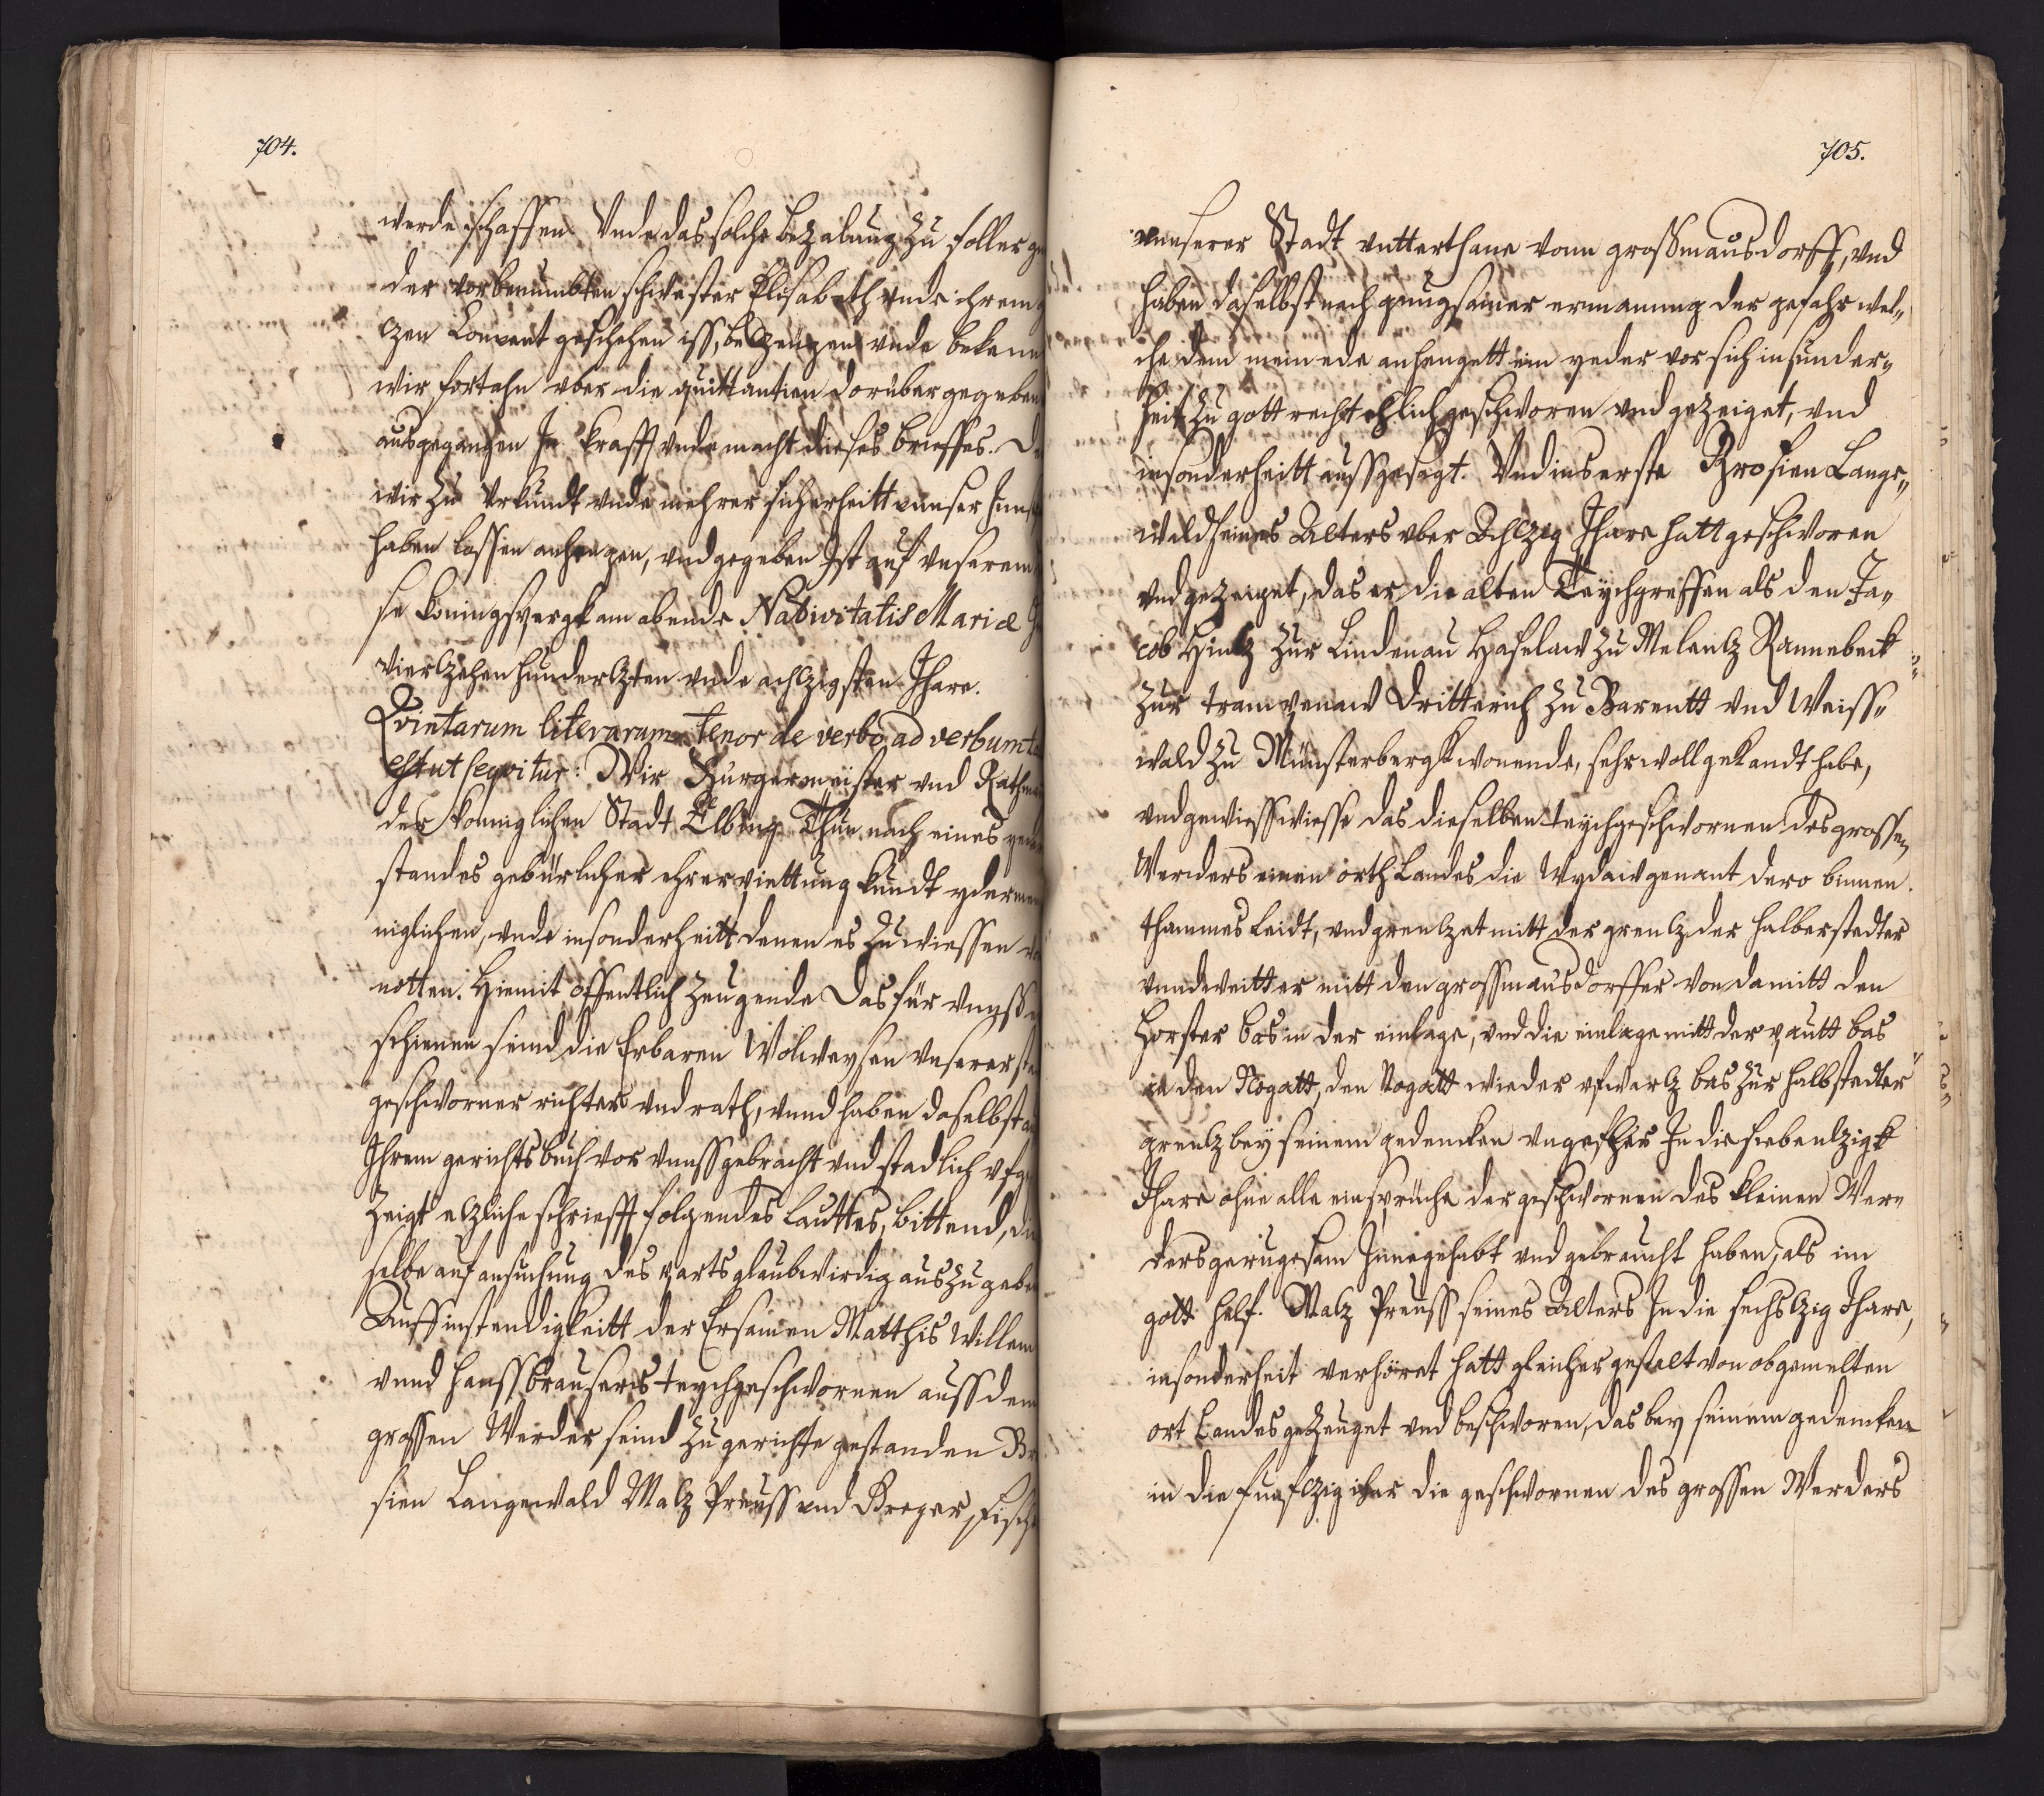 704.
werde schaffen. Vnde das solche bezalung zu foller
der vorbenumbten schwester Elisabeth vnde ihrem
zen Convent geschehen iss, bezeugen vnde bekenn
wir fortahn vber die quittantien dorüber gegeben
ausgegangen In krafft vnde macht dieses brieffes.
wir zu Vrkundt vnde mehrer sicherheitt vnnser
haben lassen anhengen, vnd gegeben Ist auf vnserem
se Koningspergk am abende Nativitatis Mariæ
vierzehen hunderzten vnde achzigsten Jhare.
Qvintarum literarum tenor de verbo ad verbum
est ut seqvitur: Wir Bürgermeister vnd Rathm
der königlichen Stadt Elbing Thun nach eines
standes gebürlicher ehrerpiettung kundt yderme
niglichen, vnde insonderheitt denen es zu wiessen
notten. Hiemit offentlich zeugende Das für vnnss
schienen seind die Erbaren Wolweysen vnserer
geschworner richter vnd rath, vnnd haben daselbst
Ihrem gerichtsbuch vor vnnss gebracht vnd stadlich
zeigt ezliche schriefft folgendes lauttes, bittend,
selbe auf ansuchung des parts glaubwirdig aus zu geben
Auff instendigkeitt der Ersamen Matthis Willem
vnnd hanss brausers teychgeschwornen auss dem
grossen Werder seind zu gerichte gestanden Br
sien Langewald Malz Preuss vnd Breger, Fisch
705.
vnnserer Stadt vntterthane vonn grossmausdorff, vnd
haben daselbst nach gnugsamer ermanung der gefahr wel„
che dem meinede anhengett ein yeder vor sich insunder„
heit zu gott recht ehlich geschworen vnd gezeiget, vnd
insonderheitt aussgesagt. Vnd ins erste Brosien Lange„
wald seines Alters vber Achzig Jhare hatt geschworen
vnd gezeuget, das er die alten Teychgreffen als den Ja„
cob Hintz zur Lindenau Haselaw zu Melentz Rannebeck
zur trampenaw Dritterich zu Barentt vnd Weiss„
wald zu Münsterbergk wonende, sehr woll gekandt habe,
vnd gewiess wiesse das dieselben teychgeschwornen des grossen
Werders einen orth Landes die Wydaw genant dero binnen
thammes leidt, vnd grentzet mitt der grentz der halberstedter
vnnd weitter mitt den grossmausdorffer von da mitt den
Horster bas in der einlage, vnd die einlage mitt der pautt bas
in den Nogatt, den Nogatt wieder vfwartz bas zur halbstedter
grentz bey seinem gedencken vngefher In die siebentzigk
Jhare ohne alle einsprüche der geschwornen des kleinen Wer„
ders gerugesam Innegehabt vnd gebraucht haben, als im
gott helf. Malz Preuss seines Alters In die sechszig Jhare,
insonderheit verhöret hatt gleicher gestalt von obgemelten
ort Landes gezeuget vnd beschworen, das bey seinem gedencken
in die funfzig ihar die geschwornen des grossen Werders